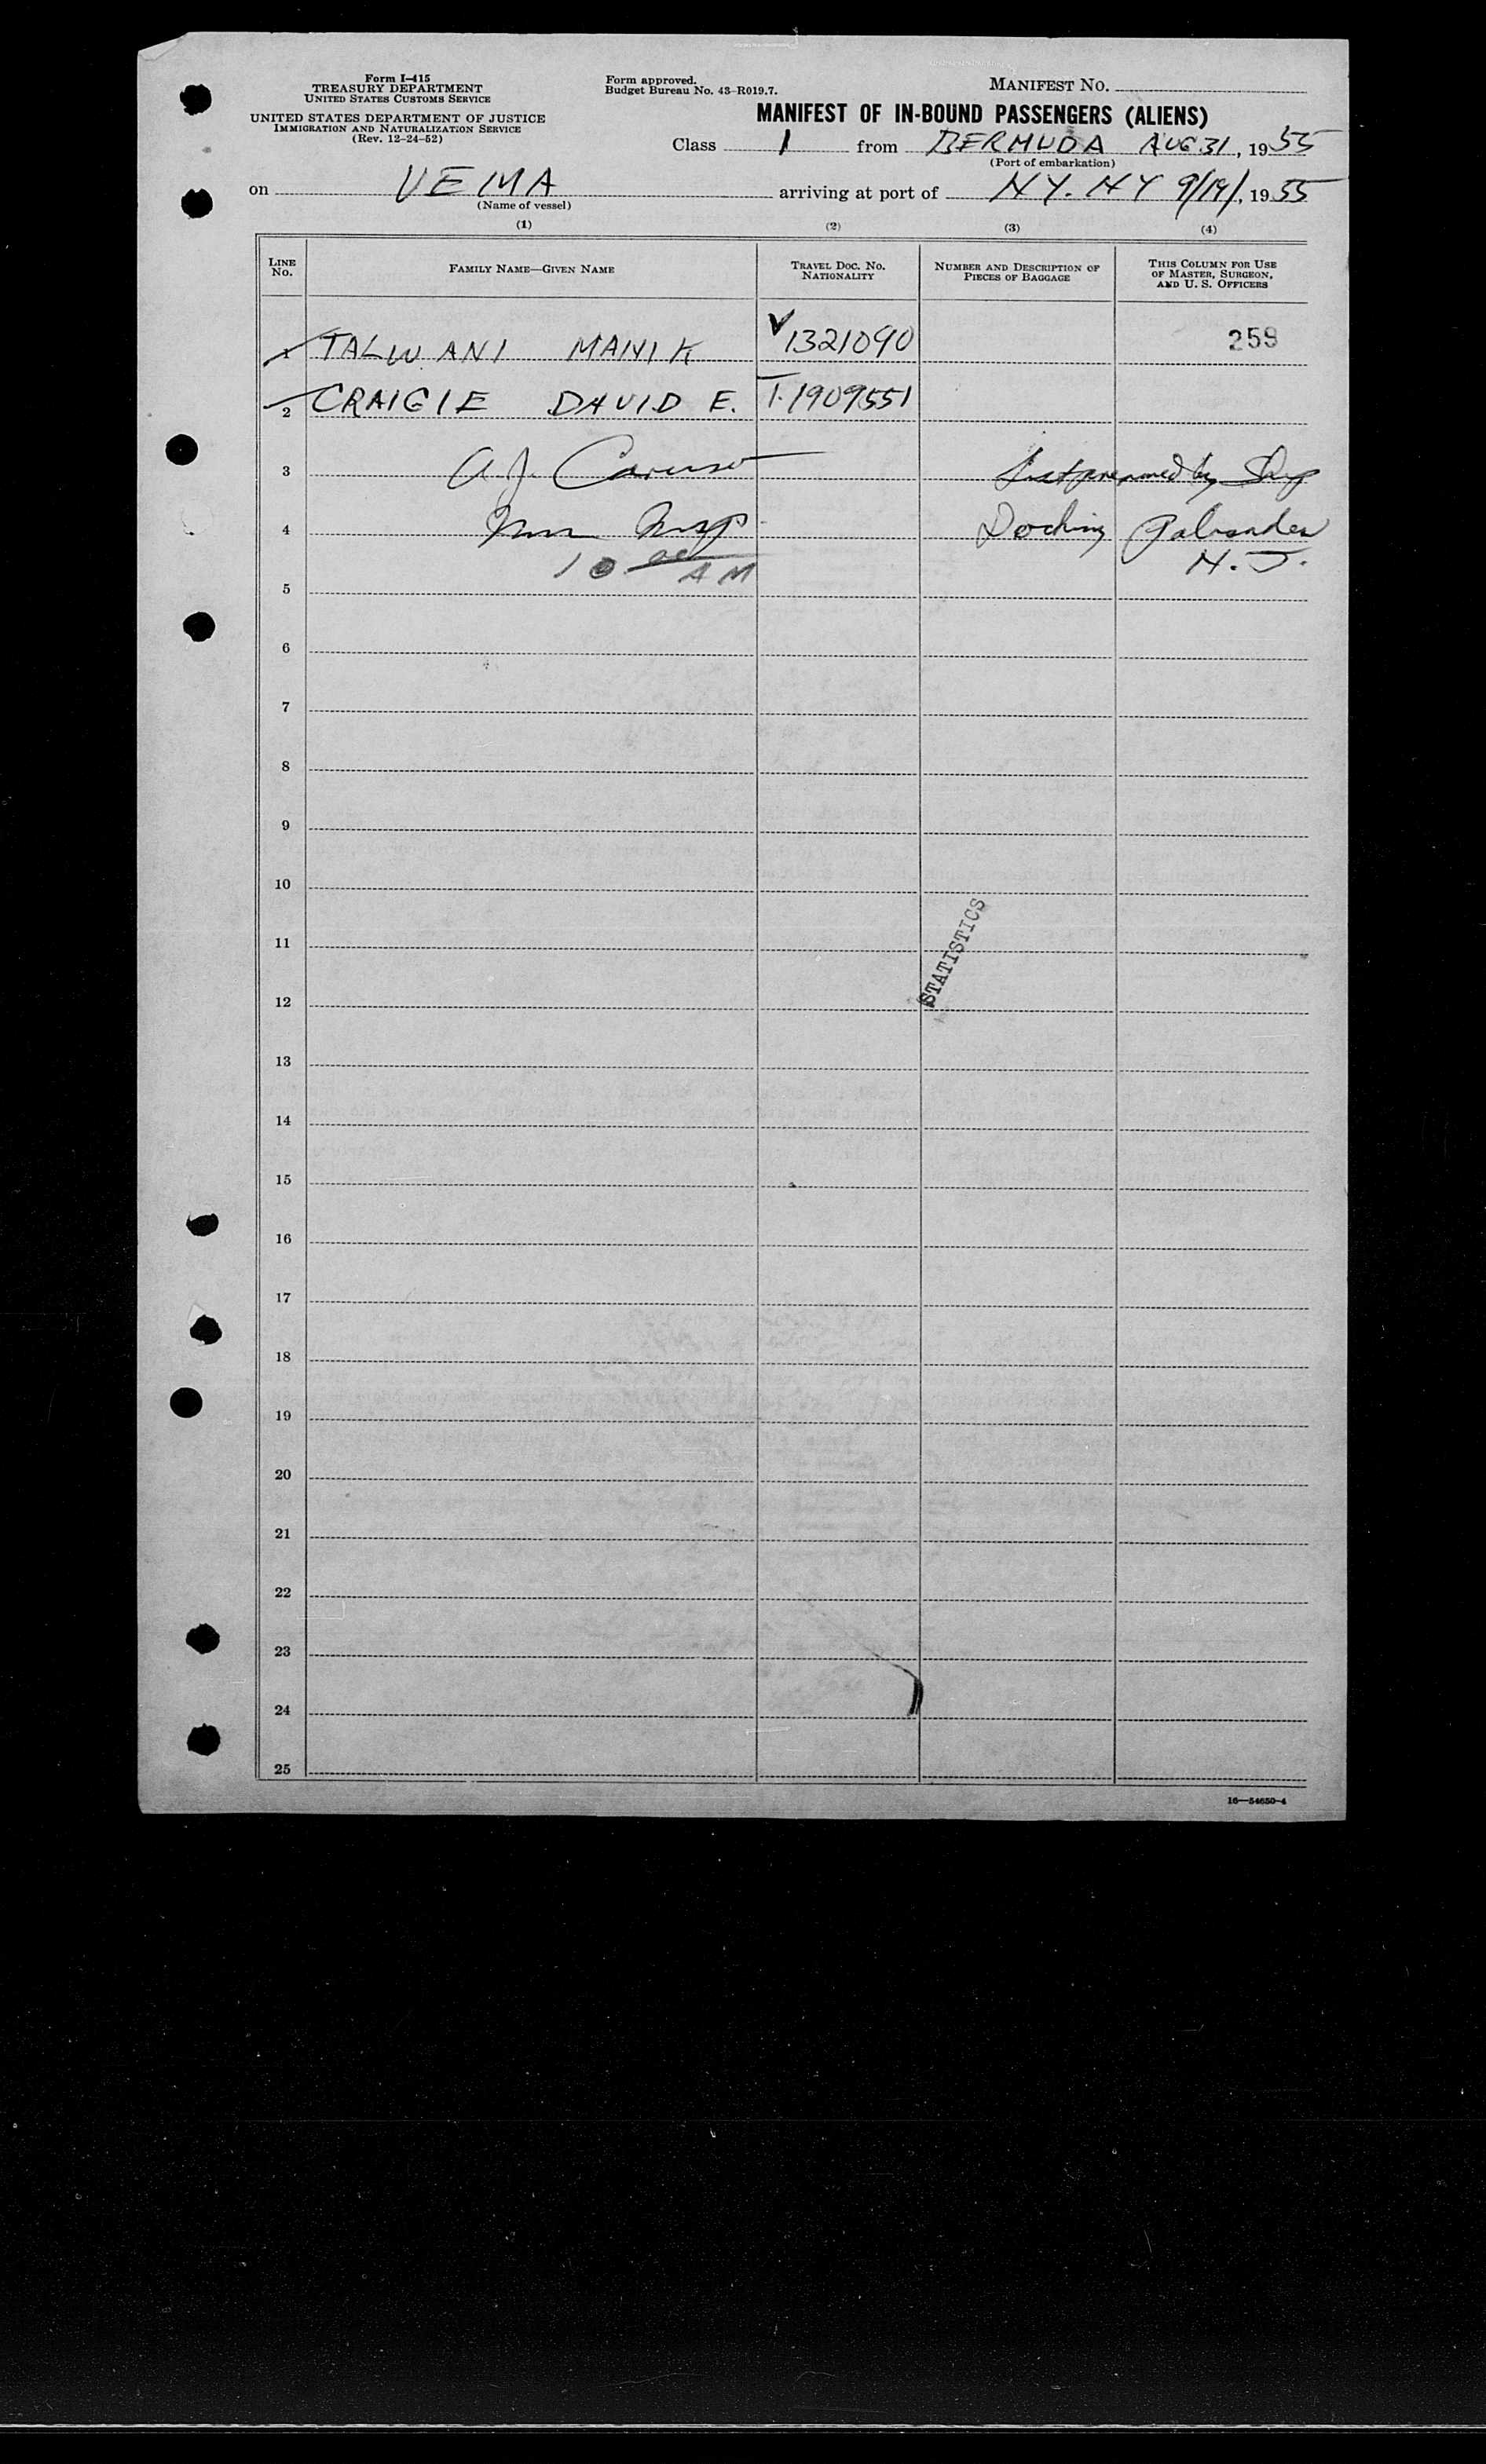 Form I-415
TREASURY DEPARTMENT
UNITED STATES CUSTOMS SERVICE
UNITED STATES DEPARTMENT OF JUSTICE
IMMIGRATION AND NATURALIZATION SERVICE
(Rev. 12-24-52)
Form approved.
Budget Bureau No. 43-R019.7.
MANIFEST NO.
MANIFEST OF IN-BOUND PASSENGERS (ALIENS)
Class 1 from BERMUDA AUG 31, 1955
(Port of embarkation)
on VEMA arriving at port of NY. NY 9/19/, 1955
(Name of vessel)
(1) (2) (3) (4)
LINE NO. FAMILY NAME—GIVEN NAME TRAVEL DOC. NO. NATIONALITY NUMBER AND DESCRIPTION OF PIECES OF BAGGAGE THIS COLUMN FOR USE OF MASTER, SURGEON, AND U. S. OFFICERS
1 TALWANI MANIK V 1321090 259
2 CRAIGIE DAVID E. T. 1909551
3 A J. Caruso List prepared by Ship
4 Imm Insp Docking Palisades
N. J.
10 00 AM
5
6
7
8
9
10
11
STATISTICS
12
13
14
15
16
17
18
19
20
21
22
23
24
25
16—54650-4